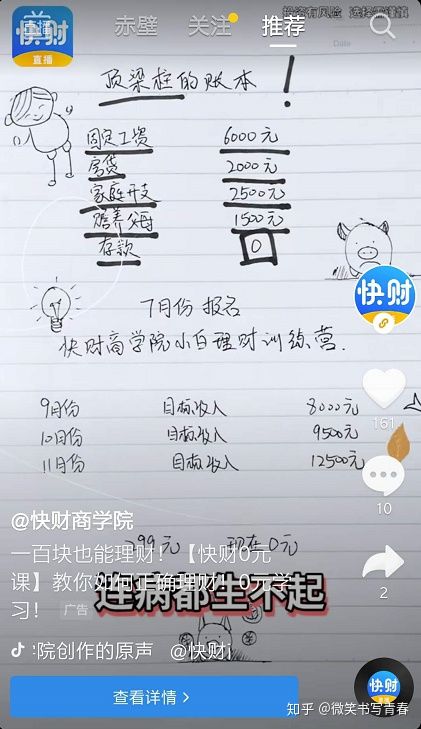 投资有风险 选择需谨慎
快财
直播
直播
赤壁 关注 推荐
Date
顶梁柱的账本!
固定工资 6000元
房贷 2000元
家庭开支 2500元
赡养父母 1500元
存款 0
快财
7月份报名
快财商学院小白理财训练营.
9月份 目标收入 8000元
10月份 目标收入 9500元
11月份 目标收入 12500元
161
10
2
@快财商学院
299元 现在0元
一百块也能理财!【快财0元
课】教你如何正确理财!0元学
习! 广告
连病都生不起
院创作的原声 @快财j
查看详情 >
快财
知乎 @微笑书写青春